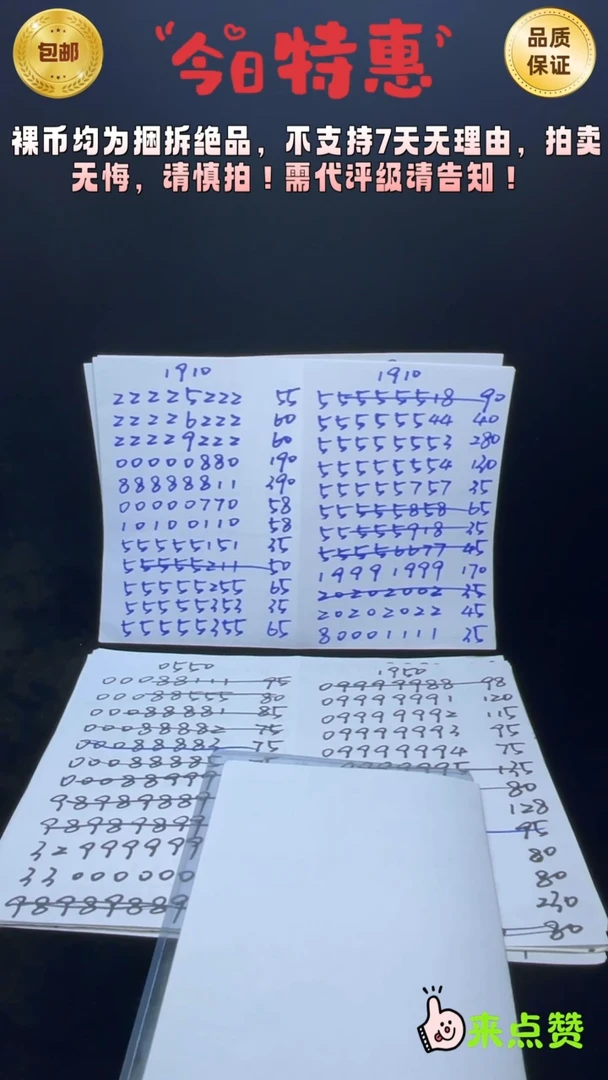 包邮
今日特惠
品质
保证
裸币均为捆拆绝品，不支持7天无理由，拍卖
无悔，请慎拍！需代评级请告知！
1910
22225222 55
22226222 60
22229222 60
00000880 190
88888811 390
00000770 58
10100110 58
55555151 35
55555211 50
55555255 65
55555353 35
55555355 65
1910
55555518 90
55555544 40
55555553 280
55555554 130
55555757 35
55555858 65
55555918 35
55556677 45
19991999 170
20202002 35
20202022 45
80001111 35
0550
00088111 95
00088555 80
00088881 85
00088882 75
00088883 75
0008888
00088999
98989899
98989899
32999999
33000000
98989889
1950
09999988 98
09999991 120
09999992 115
09999993 95
09999994 75
135
80
128
95
80
80
230
80
来点赞